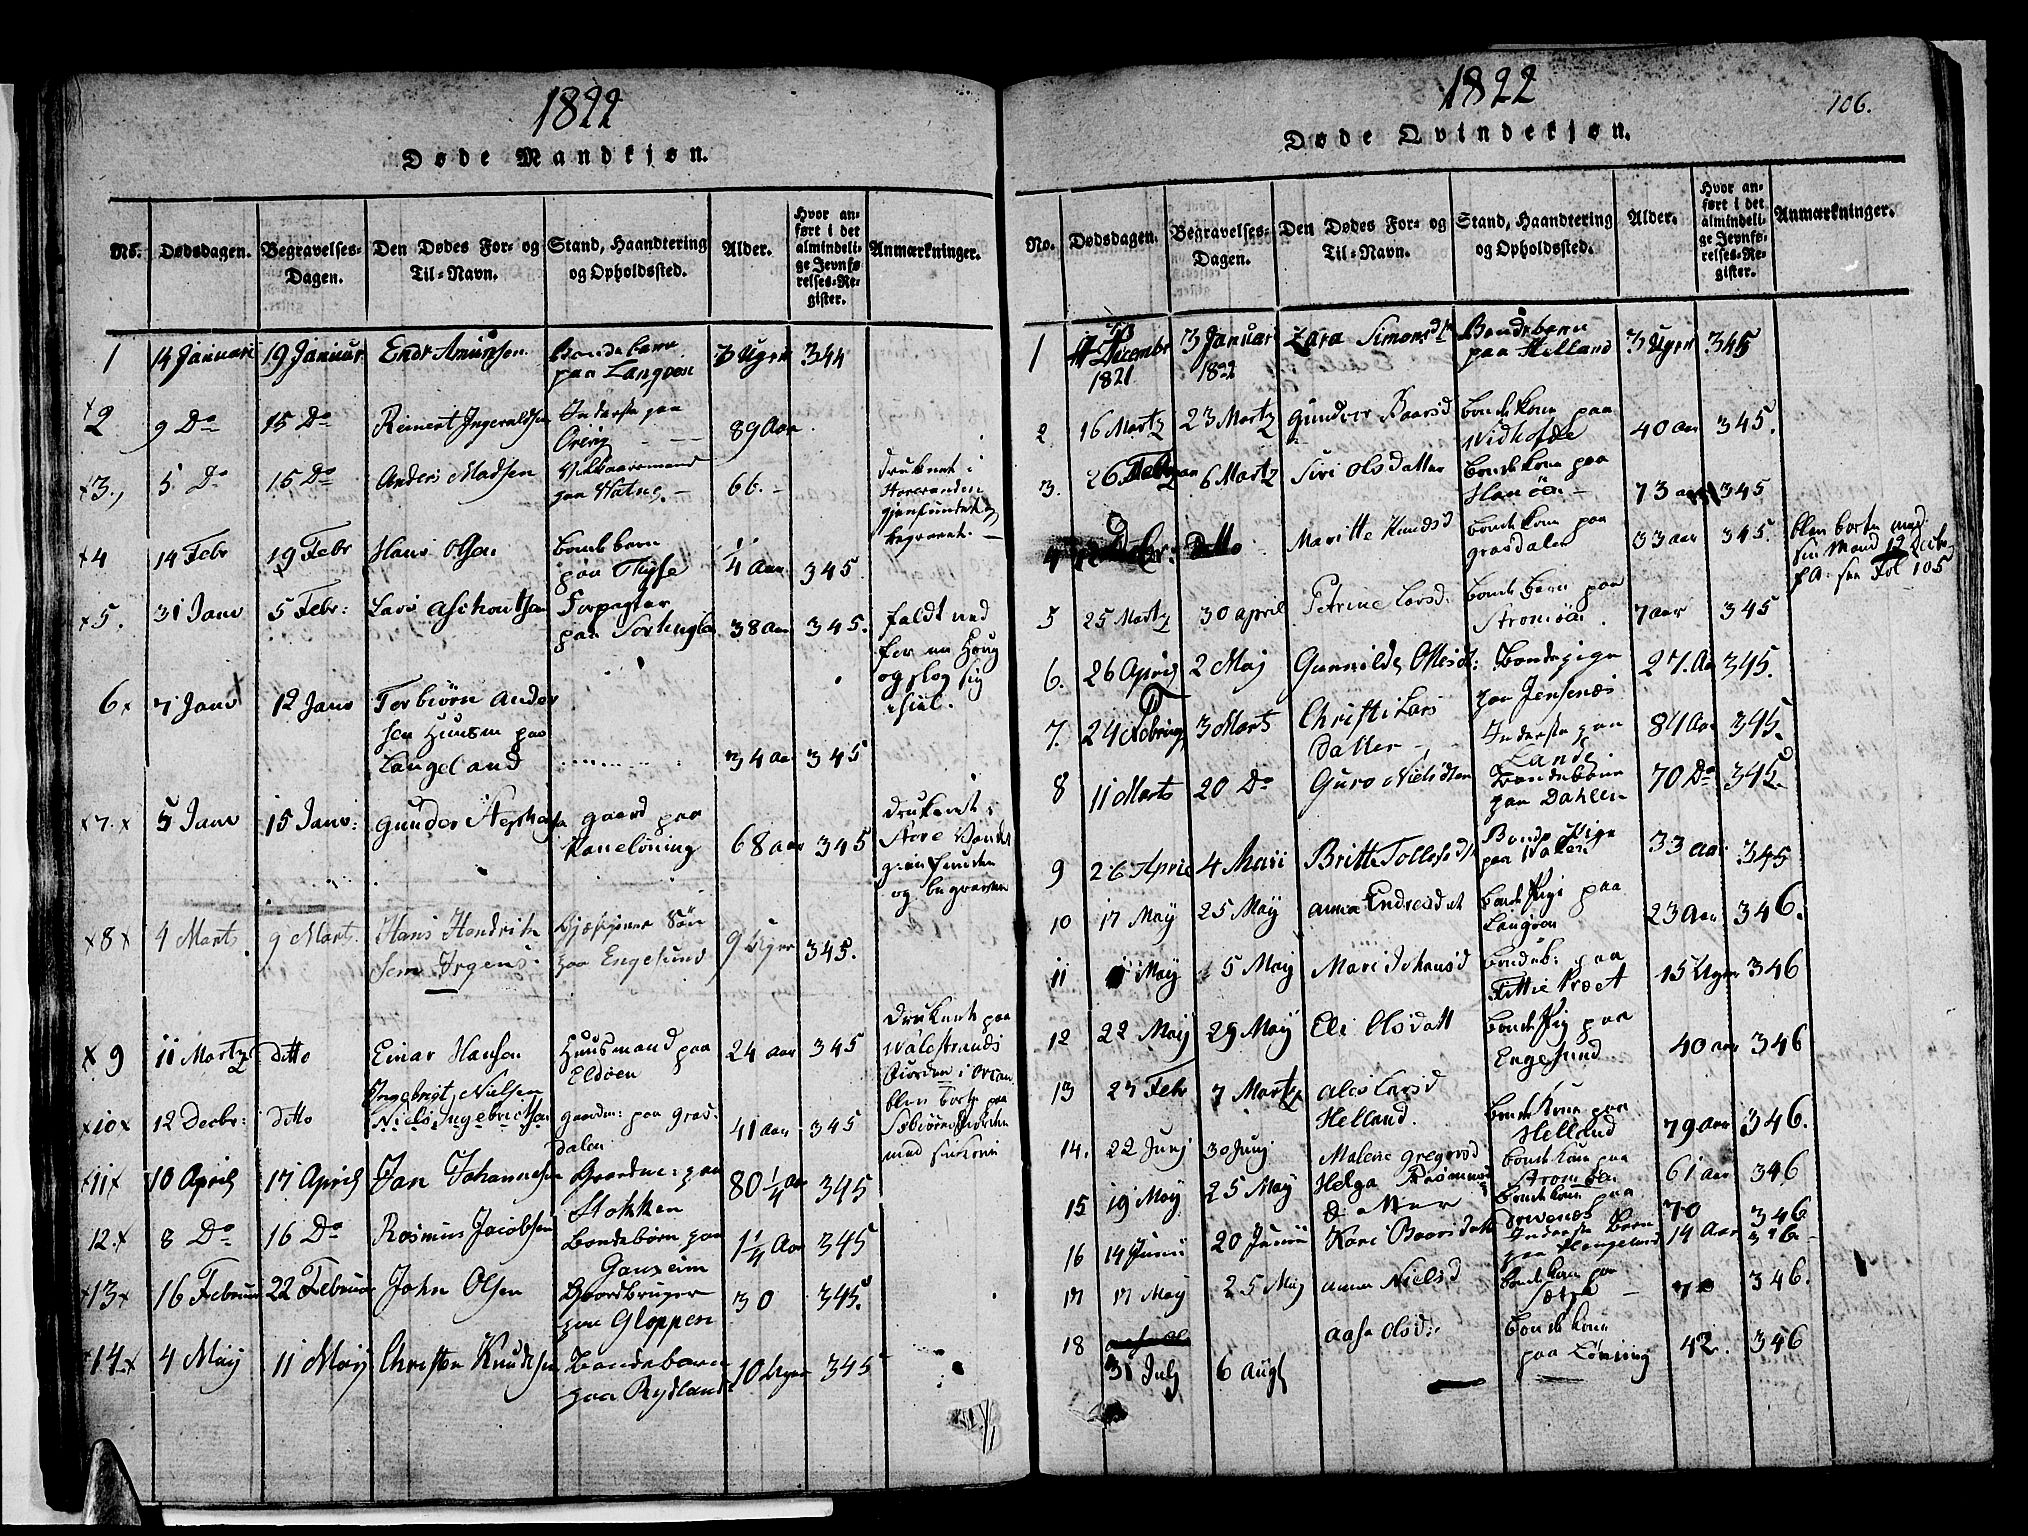 1822
Døde Mandkjøn.
No. Dødsdagen. Begravelses-Dagen. Den Dødes For- og Til-Navn. Stand, Haandtering og Opholdssted. Alder. Hvor anført i det almindelige Jevnførelses-Register. Anmærkninger.
1 14 Januari 19 Januar Endr Amunsen Bondebarn paa Langøen 3 Uger 344
2 9 Do 15 Do Reinert Ingeraldsen Inderste paa 89 Aar
3. 5 Do 15 Do Anders Madsen paa Watne 66. druknet i gjenfunden og begravet.
4 14 Febr 19 Febr Hans Olsen bonde barn paa Thyse 1/4 Aar 345.
5. 31 Janv 5 Febr: Lars Aschoutsen Forpagter paa 38 Aar 345. faldt ned for en Houg og slog sig ihiel.
6 7 Janv 12 Janv Torbiørn Andersen Huusm paa Langeland 34 Aar 345
7. 5 Janv 15 Janv: Gunder gaard paa Køneløning 68 aar 345 druknet i Store Vandet gienfunden og begraven
8 4 Marts 9 Marts. Hans Hendrik Sem Irgens Søn paa Engesund 9 Uger 345.
9 11 Martz ditto Einar Hansen Huusmand paa Eldøen 24 aar 345 druknet paa Fiorden
10 12 Decbr: ditto Ingebrigt Nielsen Niels Ingebrictsen gaardm: paa Grasdalen 41 aar 345 blev borte paa Fiorden med sin kone
11 10 April 17 April Jan Johannesen Gaardm: paa Stokken 80 1/4 Aar 345
12. 8 Do 16 Do Rasmus Jacobsen Bondebørn paa 1 1/4 Aar 345
13 16 Februar 22 Februar John Olsen Gaardbruger paa Gloppen 30 345.
14 4 May 11 May Christen Knudsen Bondebarn paa Rydland 10 Uger 345
1822
106.
Døde Qvindekjøn.
No. Dødsdagen. Begravelses-Dagen. Den Dødes For- og Til-Navn. Stand, Haandtering og Opholdssted. Alder. Hvor anført i det almindelige Jevnførelses-Register. Anmærkninger.
1 Decembr 1821 3 Januar 1822 Zara Simonsdtr Bondebarn paa Helland 3 Uger 345
2. 16 Martz 23 Martz Gunver Baarsd bondekone paa 40 aar 345.
3. 26 6 Martz Siri Olsdatter bondekone paa 73 aar 345
4 Decbr: Ditto Maritte Knudsd bondekone paa grasdalen 33 aar 345. blev borte med sin Mand 12 Decbr f.A: see Fol 105
5 25 Martz 30 april Petrine Larsd: bondebarn paa Strømøen. 7 aar 345
6. 26 April 2 Maj Gunnilde Ollesd: Bondepige paa Jensenæs 27. Aar 345.
7. 24 Februar 3 Marts Christi Lars Datter Inderste paa Lande 84 Aar 345.
8 11 Marts 20 Do Guro Nielsdtr Bondekone paa Dahlen 70 Do 345.
9 26 April 4 Maii Britte Tollefsd Bonde Pige paa 33 aar 345
10 17 May 25 May anna Endresdat bondePige paa Langøen 23 Aar 346.
11 May 5 May Mari Johansd bondeb: paa Tittie Præet 15 Uger 346
12 22 Maij 29 Maij Eli Olsdatt bondePig paa Engesund 40 aar 346
13 27 Febr 7 Martz Ales Larsd Helland. bondeKone paa Helland 79 Aar 346.
14. 22 Junj 30 Junj Malene Gregorsd bondekone paa Strømøen 61 aar 346
15 19 May 25 May Helga Rasmus datter bondekone paa 70 346
16 14 Junii 20 Junii Kari Baarsdatt Inderste Barn paa Haugeland 14 Aar 346
17 17 May 25 May anna Nielsd bondekone paa Sætre 70 346.
18 31 July 6 Augt Aase Olsd: bondekone paa Løning 42. 346